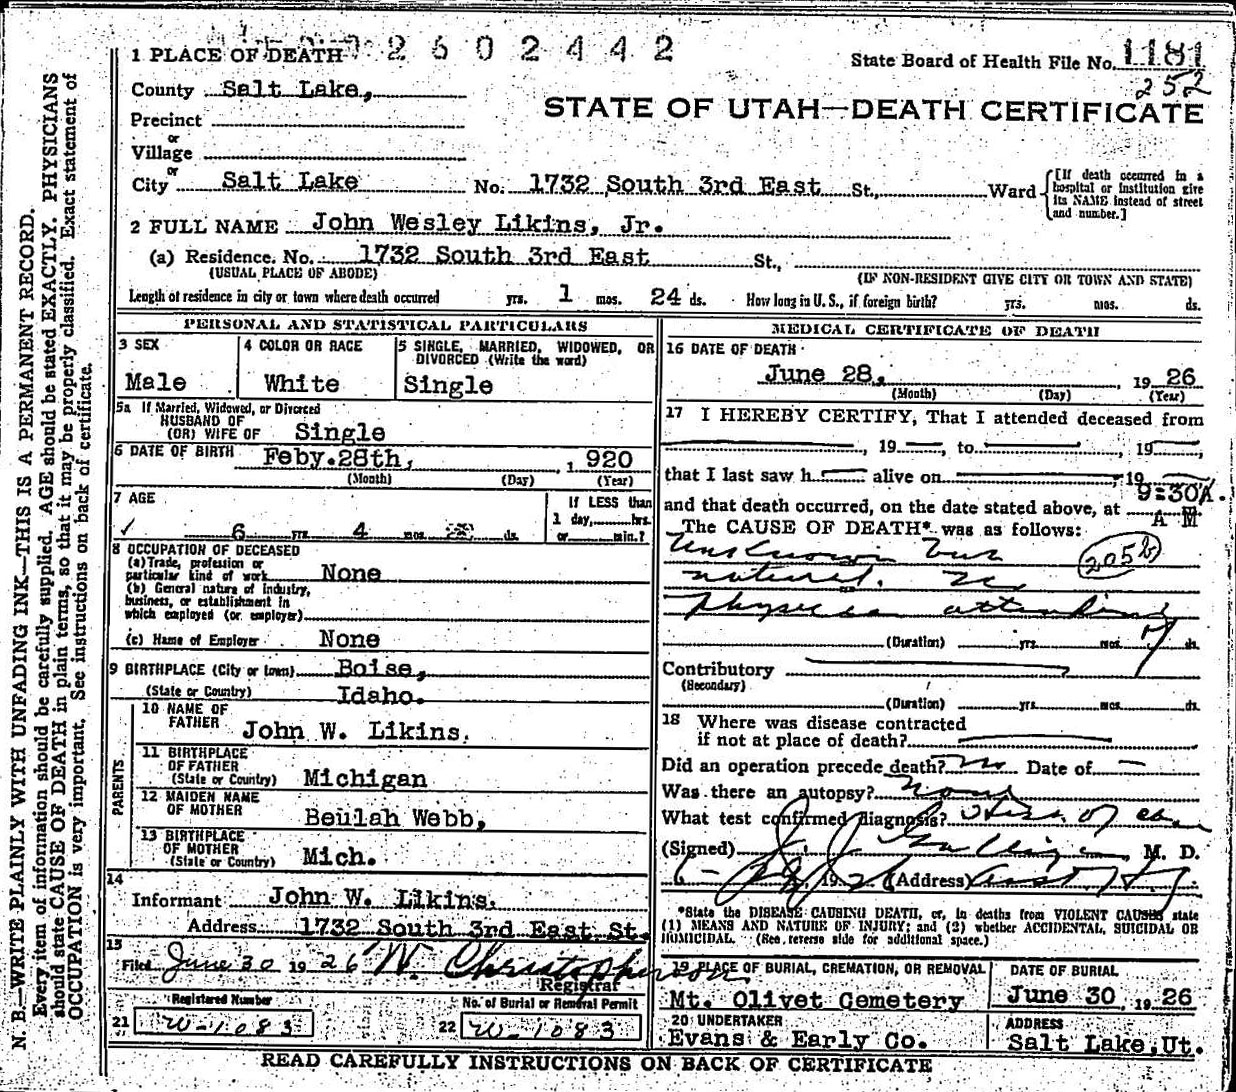 2602442
1 PLACE OF DEATH
State Board of Health File No. 1181
252
County Salt Lake,
STATE OF UTAH—DEATH CERTIFICATE
Precinct
or
Village
or
City Salt Lake No. 1732 South 3rd East St., Ward
[If death occurred in a
hospital or institution give
its NAME instead of street
and number.]
2 FULL NAME John Wesley Likins, Jr.
(a) Residence. No. 1732 South 3rd East St.,
(USUAL PLACE OF ABODE) (IF NON-RESIDENT GIVE CITY OR TOWN AND STATE)
Length of residence in city or town where death occurred yrs. 1 mos. 24 ds. How long in U. S., if foreign birth? yrs. mos. ds.
PERSONAL AND STATISTICAL PARTICULARS
3 SEX
Male
4 COLOR OR RACE
White
5 SINGLE, MARRIED, WIDOWED, OR
DIVORCED (Write the word)
Single
5a If Married, Widowed, or Divorced
HUSBAND OF
(OR) WIFE OF Single
6 DATE OF BIRTH Feby. 28th, , 1 920
(Month) (Day) (Year)
7 AGE
6 yrs. 4 mos. ds.
If LESS than
1 day, hrs.
or min.?
8 OCCUPATION OF DECEASED
(a) Trade, profession or
particular kind of work None
(b) General nature of industry,
business, or establishment in
which employed (or employer)
(c) Name of Employer None
9 BIRTHPLACE (City or town) Boise,
(State or Country) Idaho.
PARENTS
10 NAME OF
FATHER John W. Likins.
11 BIRTHPLACE
OF FATHER
(State or Country) Michigan
12 MAIDEN NAME
OF MOTHER Beulah Webb,
13 BIRTHPLACE
OF MOTHER
(State or Country) Mich.
14
Informant John W. Likins.
Address 1732 South 3rd East St.
15
Filed June 30 1926 W. Christopherson
Registrar
Registered Number
21 W-1083
No. of Burial or Removal Permit
22 W-1083
MEDICAL CERTIFICATE OF DEATH
16 DATE OF DEATH
June 28, , 19 26
(Month) (Day) (Year)
17 I HEREBY CERTIFY, That I attended deceased from
, 19 to , 19
that I last saw h alive on , 19
9:30A.
and that death occurred, on the date stated above, at A M
The CAUSE OF DEATH* was as follows:
Unknown but
205b
natural. No
physician attending
(Duration) yrs. mos. ds.
Contributory
(Secondary)
(Duration) yrs. mos. ds.
18 Where was disease contracted
if not at place of death?
Did an operation precede death? No Date of —
Was there an autopsy? None
What test confirmed diagnosis?
(Signed) M. D.
6- 192 (Address)
*State the DISEASE CAUSING DEATH, or, in deaths from VIOLENT CAUSES state
(1) MEANS AND NATURE OF INJURY; and (2) whether ACCIDENTAL, SUICIDAL OR
HOMICIDAL. (See reverse side for additional space.)
19 PLACE OF BURIAL, CREMATION, OR REMOVAL
Mt. Olivet Cemetery
DATE OF BURIAL
June 30, 1926
20 UNDERTAKER
Evans & Early Co.
ADDRESS
Salt Lake, Ut.
READ CAREFULLY INSTRUCTIONS ON BACK OF CERTIFICATE
N. B.—WRITE PLAINLY WITH UNFADING INK—THIS IS A PERMANENT RECORD.
Every item of information should be carefully supplied. AGE should be stated EXACTLY. PHYSICIANS
should state CAUSE OF DEATH in plain terms, so that it may be properly classified. Exact statement of
OCCUPATION is very important. See instructions on back of certificate.